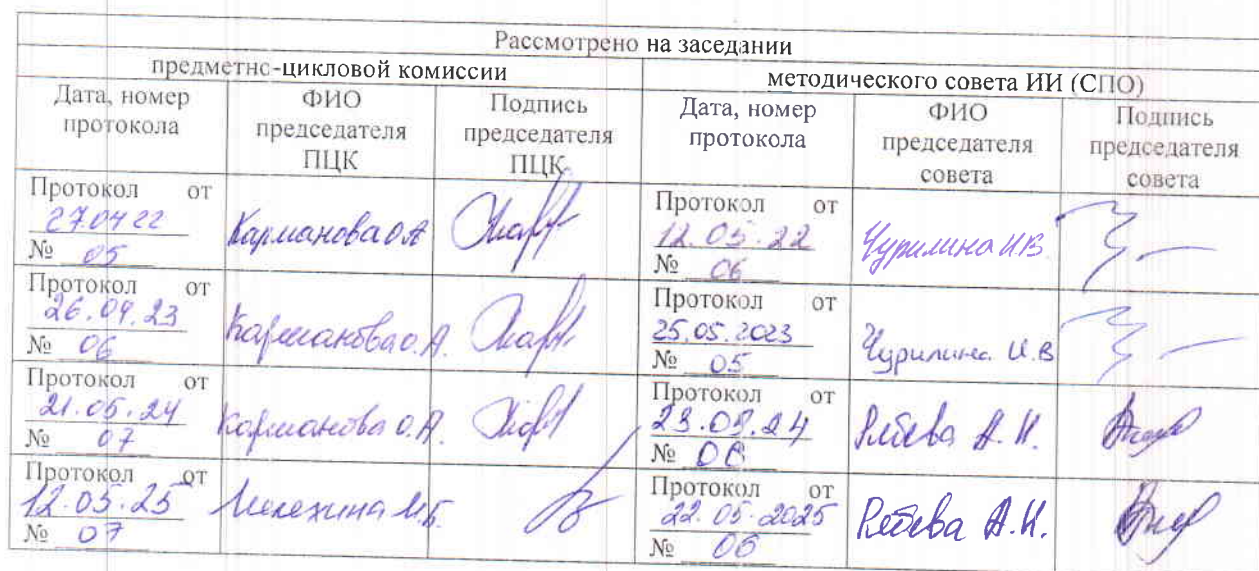 Рассмотрено на заседании
предметно-цикловой комиссии
методического совета ИИ (СПО)
Дата, номер протокола
ФИО председателя ПЦК
Подпись председателя ПЦК
Дата, номер протокола
ФИО председателя совета
Подпись председателя совета
Протокол от
27.04 22
№ 05
Карманова О.А
Протокол от
12.05.22
№ 06
Чурилина И.В.
Протокол от
26.04.23
№ 06
Карманова О.А.
Протокол от
25.05.2023
№ 05
Чурилина И.В
Протокол от
21.05.24
№ 07
Карманова О.А.
Протокол от
23.05.24
№
А.И.
Протокол от
12.05.25
№ 07
Мелехина М.Б.
Протокол от
22.05.2025
№ 06
А.И.